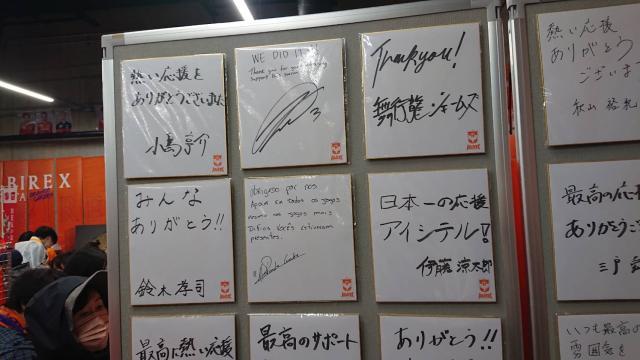 熱い応援を
ありがとうございました
小島亨介
WE DID IT!!
Thank you for your amazing
support this season
3
Thank you!
舞行龍ジェームズ
熱い応援
ありがとう
ございます
秋山 裕紀
BIREX
みんな
ありがとう!!
鈴木 孝司
Obrigado por nos
Apoiar em todos os jogos
mesmo os jogos mais
Dificis vocês estiveram
presentes.
日本一の応援
アイシテル!
伊藤 涼太郎
最高の応援
ありがとうご
三戸
最高に熱い応援
最高のサポート
ありがとう!!
いつも最高の
雰囲気を